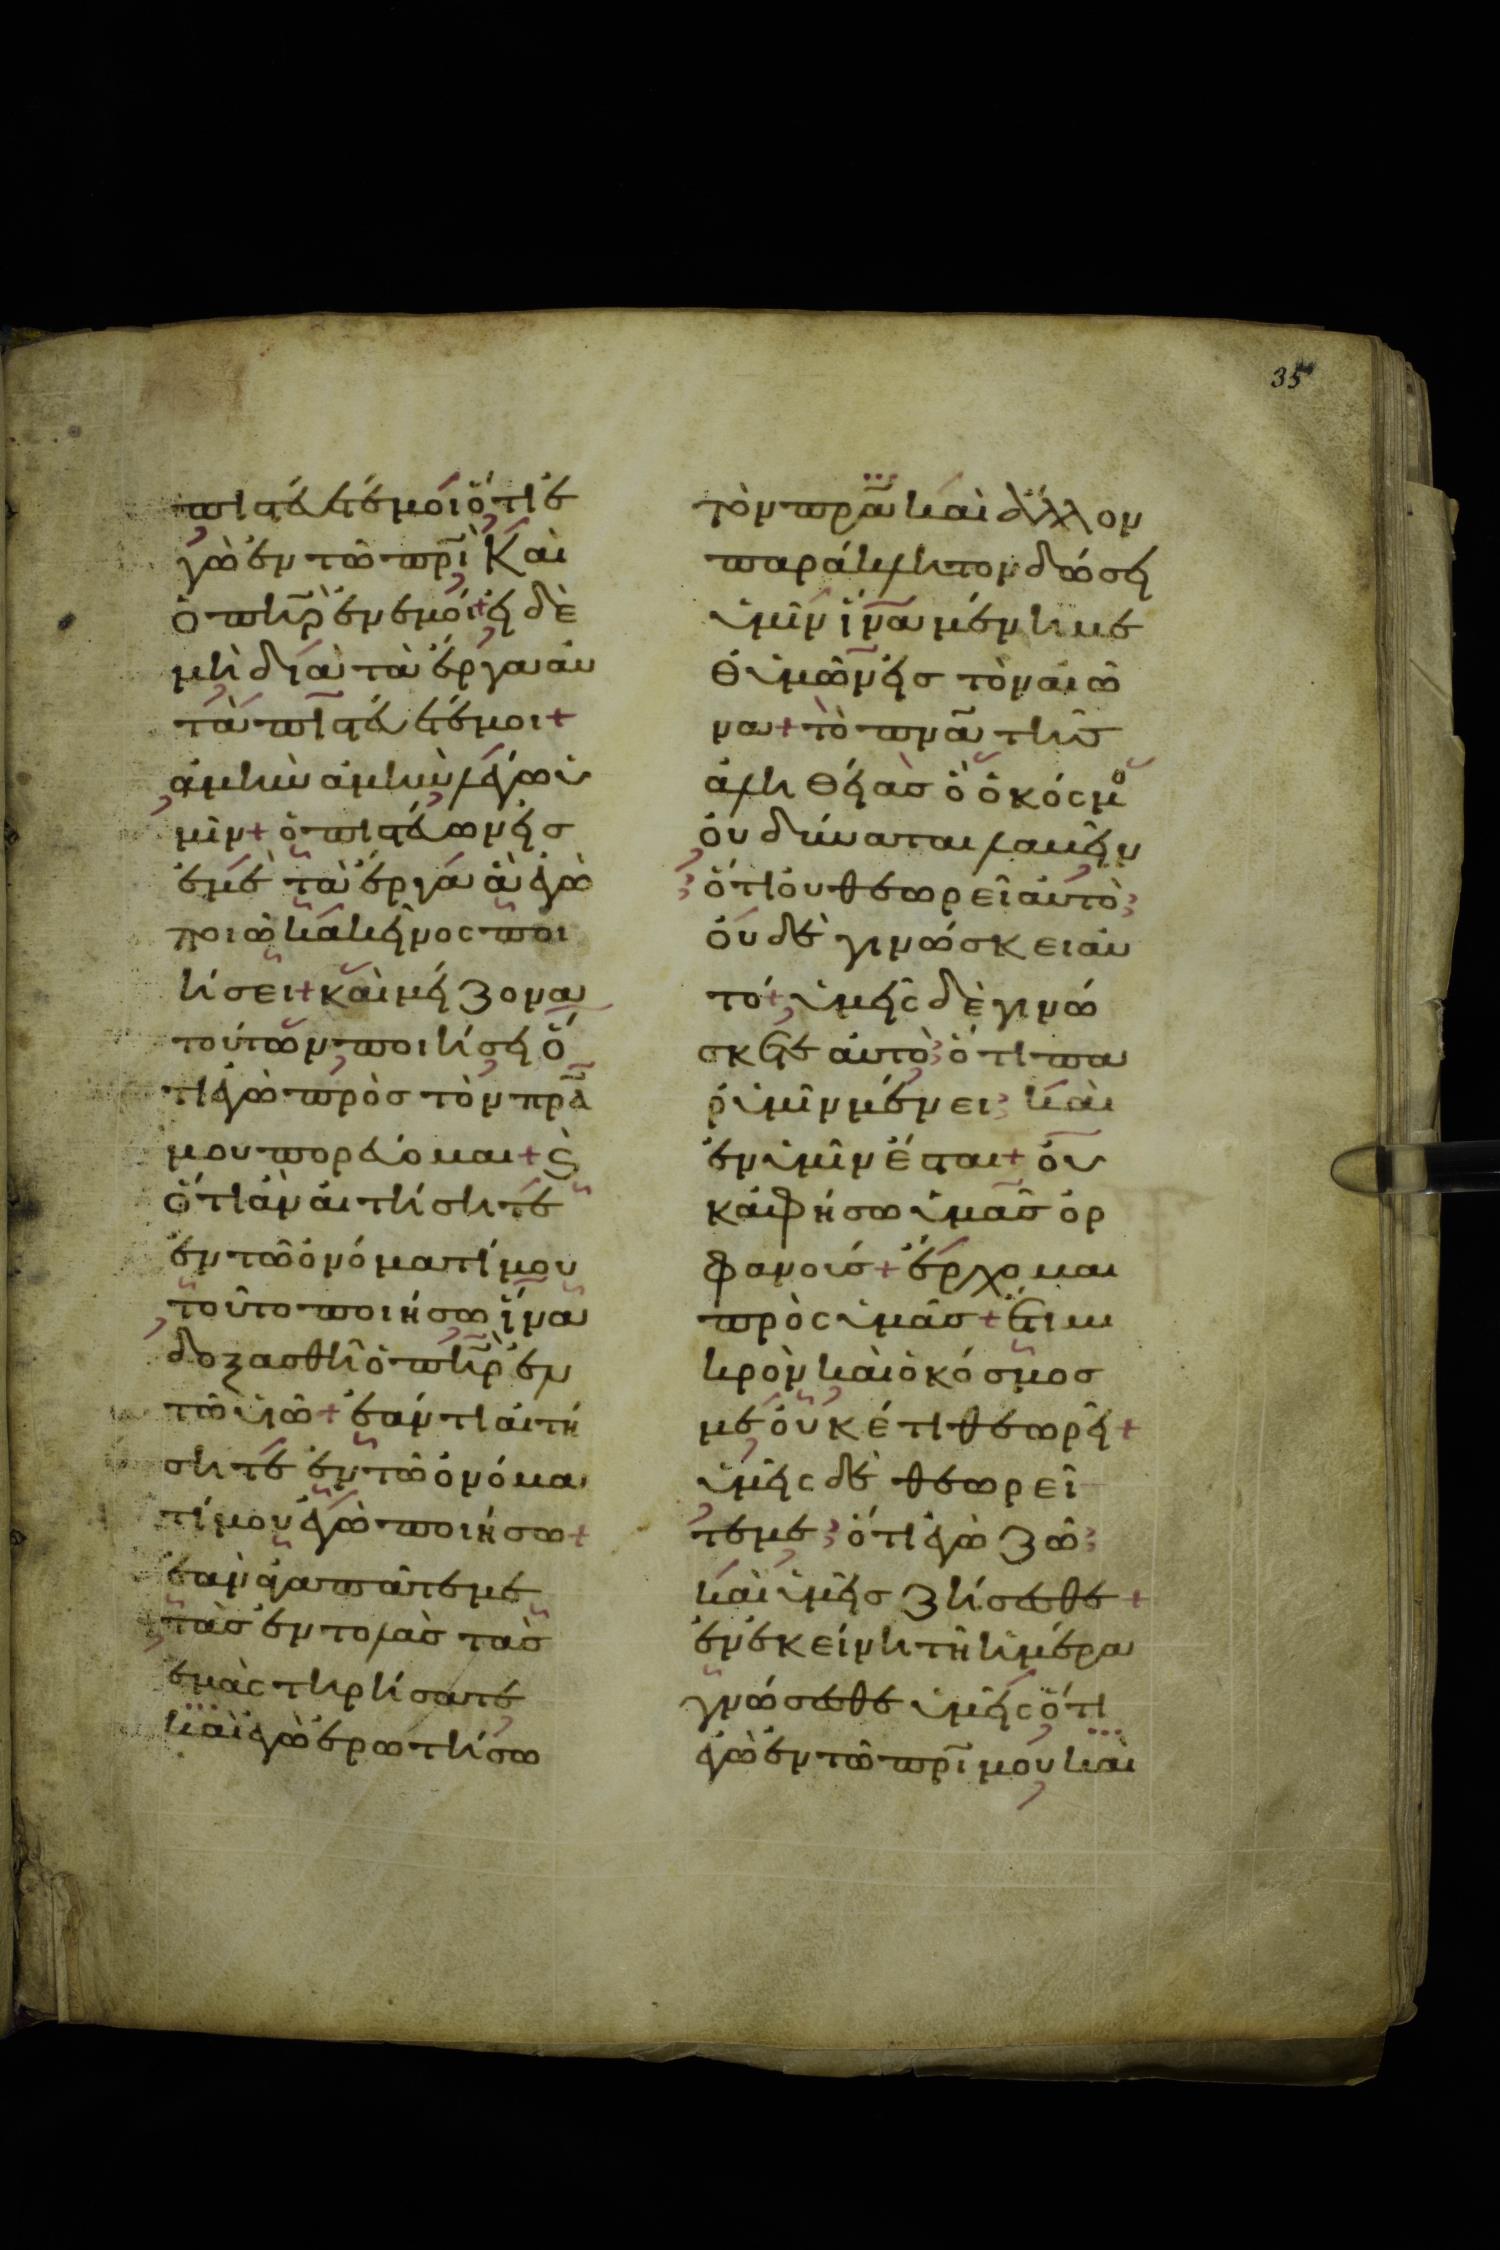 35
πιστεύετέ μοι ὅτι ἐ
γὼ ἐν τῶ πρῑ Καὶ
ὁ πηρ̄ ἐν ἐμοί + εἰ δὲ
μὴ διὰ τὰ ἔργα αὐ
τὰ πιστεύετέ μοι +
ἀμὴν ἀμὴν λέγω ὑ
μῖν + ὁ πιστεύων εἰσ
ἐμὲ τὰ ἔργα ἃ ἐγὼ
ποιῶ κακεῖνος ποι
ήσει + καὶ μείζονα
τούτων ποιήσει ὅ
τι ἐγὼ πρὸσ τὸν πρᾱ
μου πορεύομαι + ϛ̀
ὅτι ἂν αἰτήσητε
ἐν τῶ ὀνόματί μου
τοῦτο ποιήσω ἵνα
δοξασθῆ ὁ πηρ̄ ἐν
τῶ υἱῶ + ἐάν τι αἰτή
σητε ἐν τῶ ὀνόμα
τί μου ἐγὼ ποιήσω +
ἐὰν ἀγαπᾶτε με
τὰσ ἐντολὰσ τὰσ
ἐμὰς τηρήσατε
καὶ ἐγὼ ἐρωτήσω
τὸν πρᾱ καὶ ἄλλον
παράκλητον δώσει
ὑμῖν ἵνα μένη με
θ ὑμῶν εἰσ τὸν αἰῶ
να + τὸ πνᾱ τῆσ
ἀληθείασ ὃ ὁ κόσμο
οὐ δύναται λαβεῖν
ὅτι οὐ θεωρεῖ αὐτὸ
οὐδὲ γινώσκει αὐ
τό + ὑμεῖς δὲ γινώ
σκετε αὐτὸ ὅτι πα
ρ ὑμῖν μένει καὶ
ἐν ὑμῖν ἔσται + οὐ
κ ἀφήσω ὑμᾶσ ὀρ
φανούσ + ἔρχομαι
πρὸς ὑμᾶσ + ἔτι μι
κρὸν καὶ ὁ κόσμοσ
με οὐκ έτι θεωρεῖ +
ὑμεῖς δὲ θεωρεῖ
τε με ὅτι ἐγὼ ζῶ
καὶ ὑμεῖσ ζήσεσθε +
ἐν ἐκείνη τῆ ἡμέρα
γνώσεσθε ὑμεῖς ὅτι
ἐγὼ ἐν τῶ πρῑ μου καὶ